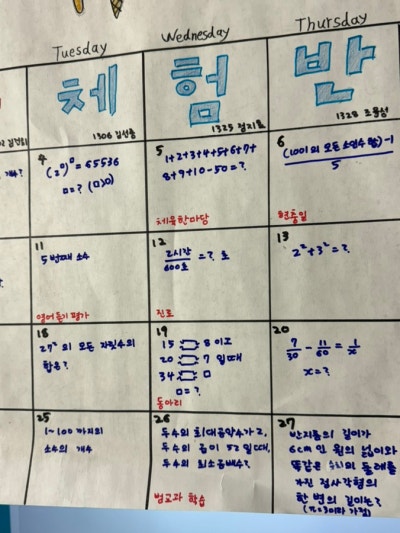 Tuesday
Wednesday
Thursday
체
험
반
1306
1325
1328
개수?
4
(2ᴼ)ᴼ = 65536
□=? (□>0)
5
1+2+3+4+5+6+7+
8+9+10-50=?
체육한마당
6
(1001의 모든 소인수 합)-1
5
현충일
11
5번째 소수
영어듣기평가
12
2시간
600초
=? 초
진로
13
2²+3²=?
18
27²의 모든 자릿수의
합은?
19
15 8 이고
20 7 일때
34 □
□=?
동아리
20
7/30 - 11/60 = 1/x
x=?
25
1~100 까지의
소수의 개수
26
두수의 최대공약수가 2,
두수의 곱이 52일때,
두수의 최소공배수?
범교과 학습
27
반지름의 길이가
6cm인 원의 넓이와
똑같은 의 둘레를
가진 정사각형의
한 변의 길이는?
(π=3이라 가정)